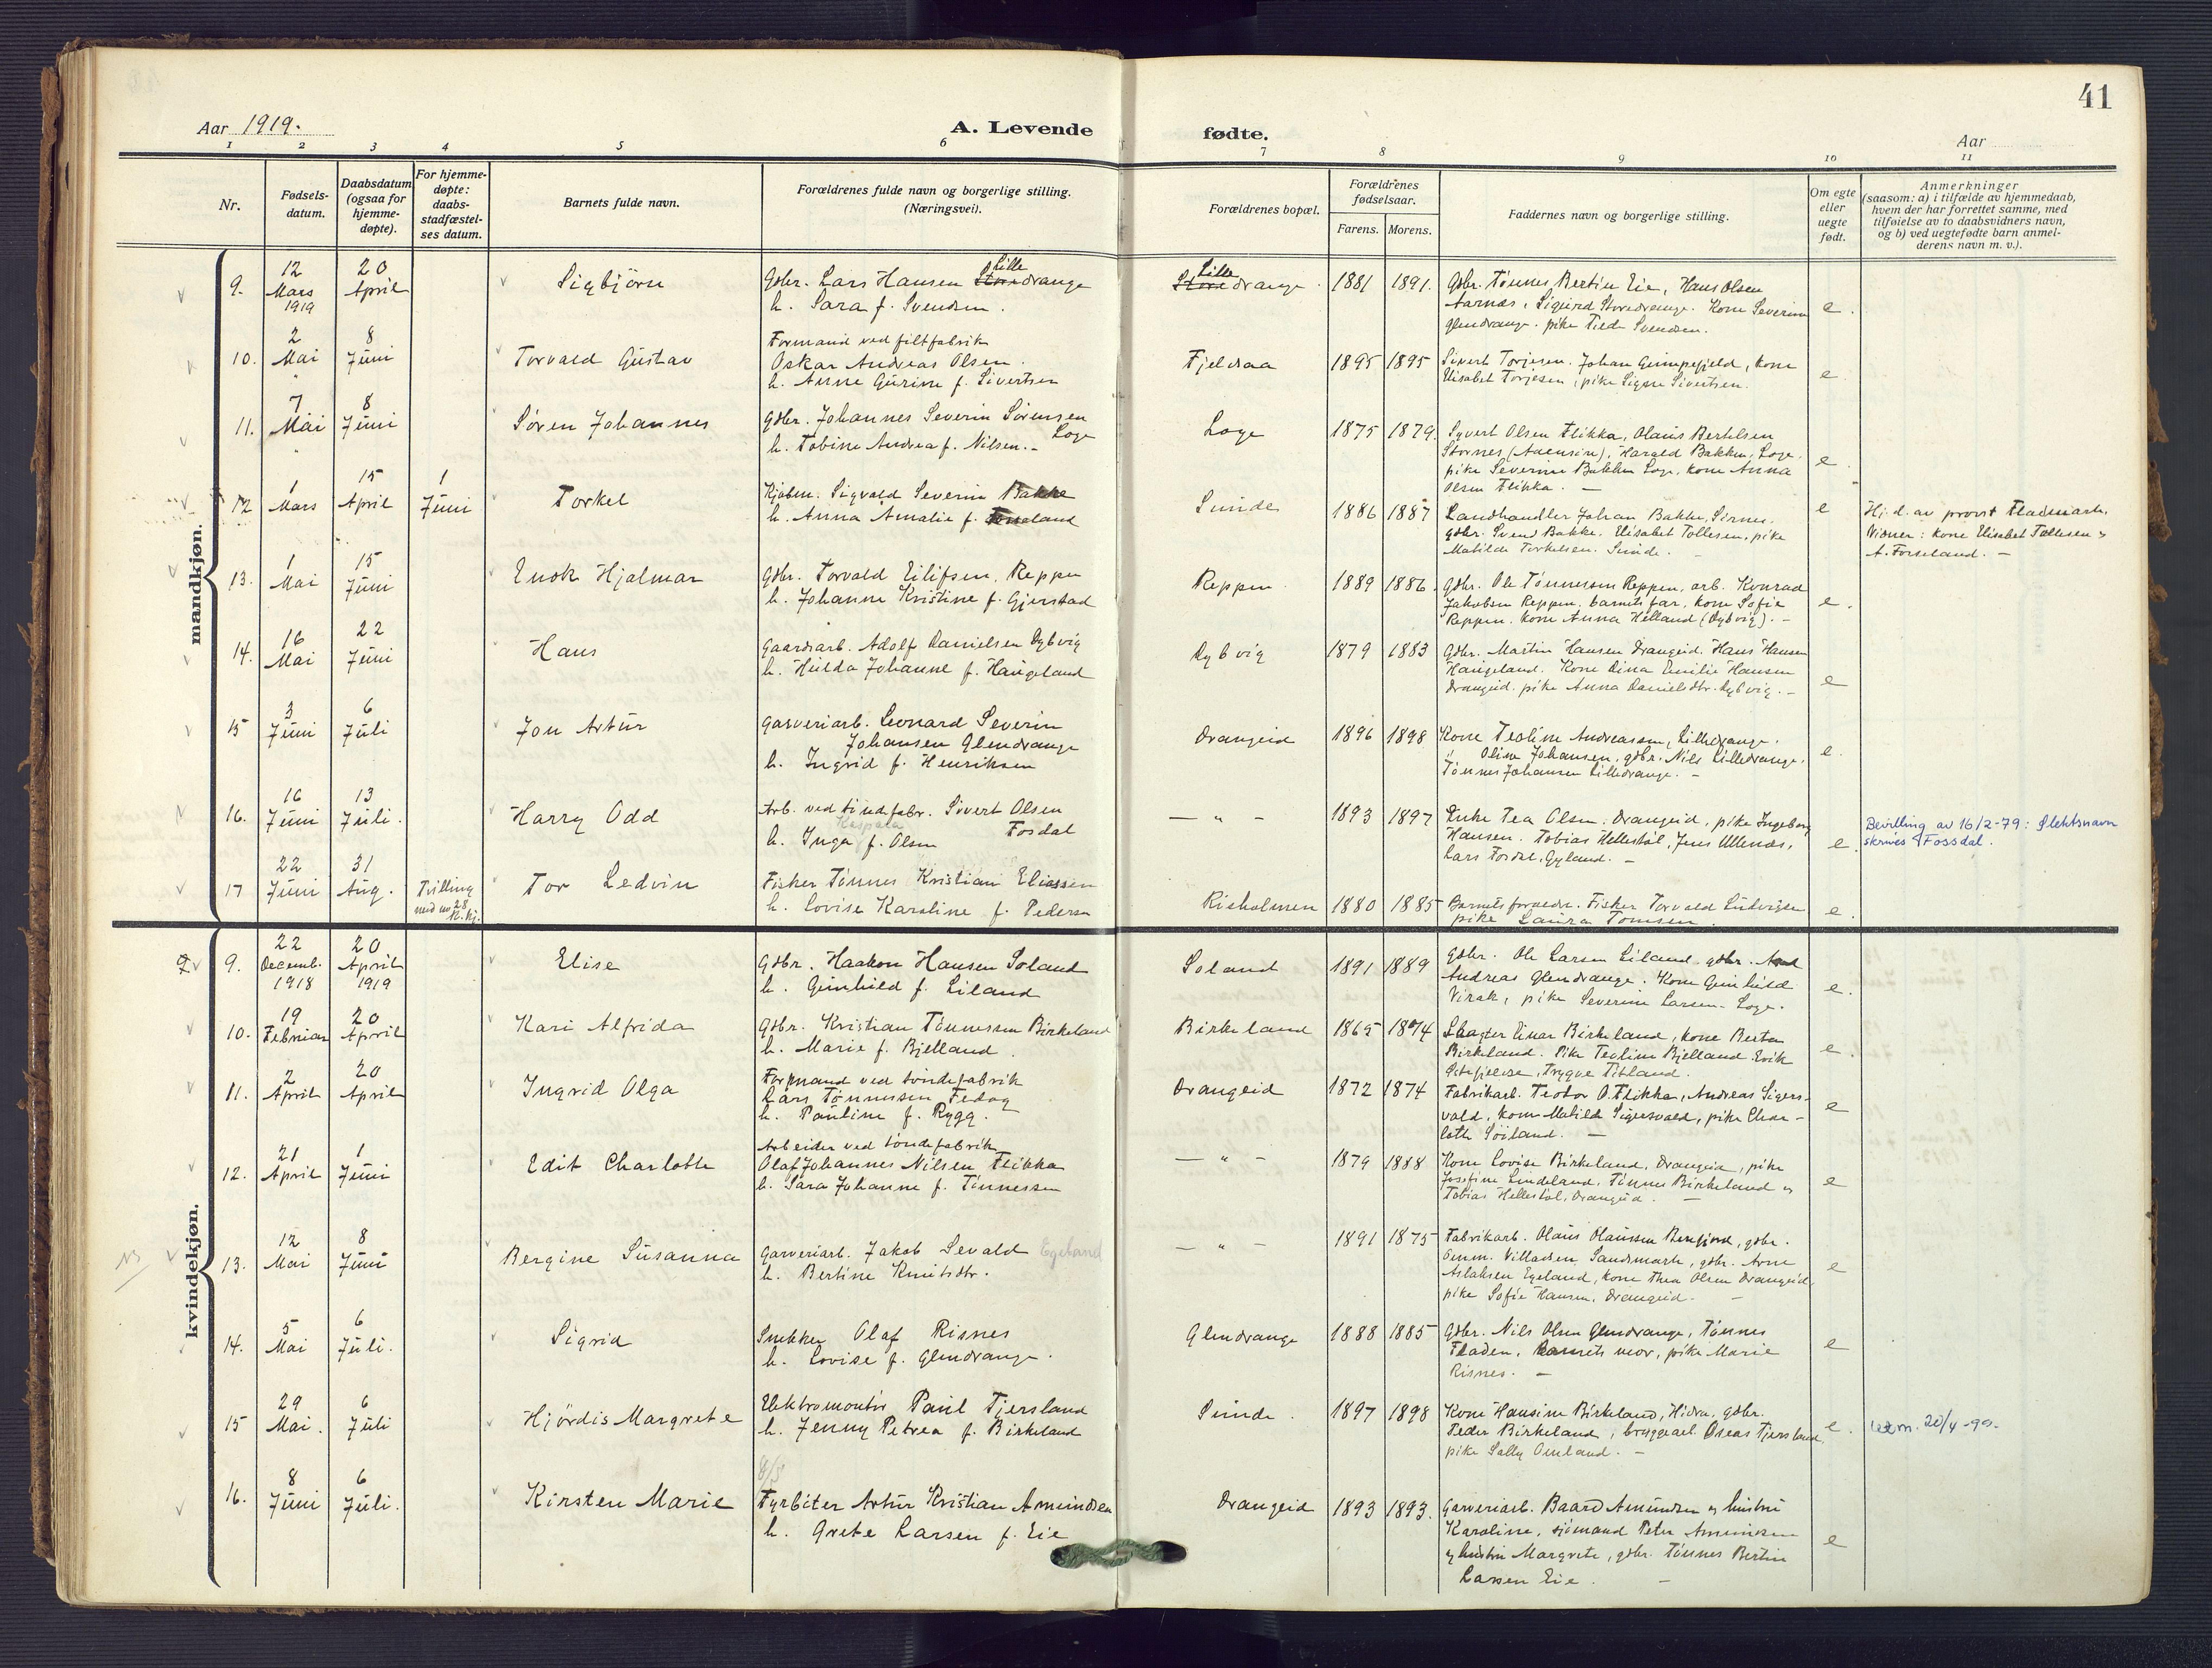 41
Aar 1919.
A. Levende fødte.
Aar
1 2 3 4 5 6 7 8 9 10 11
Nr.
Fødsels-
datum.
Daabsdatum
(ogsaa for
hjemme-
døpte).
For hjemme-
døpte:
daabs-
stadfæstel-
ses datum.
Barnets fulde navn.
Forældrenes fulde navn og borgerlige stilling.
(Næringsvei).
Forældrenes bopæl.
Forældrenes
fødselsaar.
Farens. Morens.
Faddernes navn og borgerlige stilling.
Om egte
eller
uegte
født.
Anmerkninger
(saasom: a) i tilfælde av hjemmedaab,
hvem der har forrettet samme, med
tilføielse av to daabsvidners navn,
og b) ved uegtefødte barn anmel-
derens navn m. v.).
mandkjøn.
9. 12 Mars 1919 20 April Sigbjörn
Gdbr. Lars Hansen Store Lille drange
h. Sara f. Svendsen.
Store Lille drange. 1881 1891.
Gdbr. Tönnes Bertin Eie, Hans Olsen
Aarnæs, Sigurd Storedrange. Kone Severine
Glendrange. pike Tilda Svendsen.
e.
10. 2 Mai 8 Juni Torvald Gustav
Formand ved filtfabrik
Oskar Andreas Olsen.
h. Anne Gurine f. Sivertsen
Fjeldsaa 1895 1895
Sivert Torjesen. Johan Gumpefjeld, kone
Elisabet Torjesen, pike Signe Sivertsen.
e.
11. 7 Mai 8 Juni Søren Johannes
Gdbr. Johannes Severin Sörensen
Loge
h. Tobine Andrea f. Nilsen. -
Loge 1875 1879.
Syvert Olsen Flikka, Olaus Bertelsen
Stornes (Aaensire), Harald Bakken, Loge.
pike Severine Bakken Loge, kone Anna
Olsen Flikka. -
e.
12 1 Mars 15 April 1 Juni Torkel
Kjøbm. Sigvald Severin Bakke
h. Anna Amalie f.
Sunde 1886 1887
Landhandler Johan Bakke, Sirnes.
gdbr. Svend Bakke. Elisabet Tollesen, pike
Matilde Torkelsen. Sunde. -
e
Hj. d. av provst Fladmark.
Vidner: kone Elisabet Tollesen &
A. Forseland. -
13. 1 Mai 15 Juni Enok Hjalmar
Gdbr. Torvald Eilifsen, Reppen
h. Johanne Kristine f. Gjerstad
Reppen 1889 1886.
Gdbr. Ole Tönnessen Reppen, arb. Konrad
Jakobsen Reppen, barnets far, kone Sofie
Reppen. kone Anna Helland (Dybvig). -
e.
14. 16 Mai 22 Juni Hans
Gaardsarb. Adolf Danielsen Dybvig
h. Hulda Johanne f. Haugeland
Dybvig 1879 1883
Gdbr. Martin Hansen Drangeid. Hans Hansen
Haugeland. Kone Dina Emilie Hansen
Drangeid. pike Anna Danielsdtr. Dybvig. -
e
15 3 Juni 6 Juli Jon Artur
Garveriarb. Leonard Severin
Johansen Glendrange
h. Ingrid f. Henriksen
Drangeid 1896 1898
Kone Teoline Andreassen, Lilledrange.
" Oline Johansen, gdbr. Nils Lilledrange.
Tönnes Johansen Lilledrange. -
e.
16. 16 Juni 13 Juli. Harry Odd
Arb. ved töndefabr. Sivert Olsen
Fosdal
h. Inga f. Olsen
— " - 1893 1897
Enke Tea Olsen. Drangeid, pike Ingeborg
Hansen. Tobias Hellestöl, Jens Ullenæs,
Lars Fosdal, Gyland. -
e.
Bevilling av 16/2-79: Slektsnavn
skrives Fossdal.
17 22 Juni 31 Aug. Tvilling
med no 28
kv. kj.
Tor Ledvin
Fisker Tönnes Kristian Eliassen
h. Lovise Karoline f. Pedersen
Risholmen 1880 1885
Barnets foreldre. Fisker Torvald Ludvigsen
pike Laura Tomsen.
e.
kvindekjøn.
9. 22 Decemb. 1918 20 April 1919 Elise
Gdbr. Haakon Hansen Soland
h. Gunhild f. Liland
Soland 1891 1889
Gdbr. Ole Larsen Liland gdbr.
Andreas Glendrange. Kone Gunhild
Virak, pike Severine Larsen. Loge.
e.
10. 19 Februar 20 April Kari Alfrida
Gdbr. Kristian Tönnessen Birkeland
h. Marie f. Bjelland.
Birkeland 1865 1874
Slagter Einar Birkeland, kone Berta
Birkeland. Pike Teoline Bjelland Erik
Trygve Tibland.
e.
11. 2 April 20 April Ingrid Olga
Formand ved töndefabrik
Lars Tönnessen Fedog
h. Pauline f. Rygg.
Drangeid 1872 1874
Fabrikarb. Teodor O. Flikka, Andreas Sigers-
vold, kone Matilde Sigersvold, pike Char-
lotte Söiland. -
e
12. 21 April 1 Juni Edit Charlotte
Arbeider ved töndefabrik
Olaf Johannes Nilsen Flikka
h. Sara Johanne f. Tönnessen
— " - 1879 1888
Kone Lovise Birkeland, Drangeid, pike
Josefine Lindeland, Tönnes Birkeland og
Tobias Hellestöl, Drangeid. -
e
NB
13. 12 Mai 8 Juni Bergine Susanna
Garveriarb. Jakob Sevald Egeland
h. Bertine Knutsdtr.
— " - 1891 1875
Fabrikarb. Olaus Olaussen Benfjord, gdbr.
Omm. Villadsen Sandsmark, gdbr. Arne
Aslaksen Egeland, kone Thea Olsen Drangeid,
pike Sofie Hansen. Drangeid. -
e
14. 5 Mai 6 Juli. Sigrid
Snekker Olaf Risnes
h. Lovise f. Glendrange.
Glendrange 1888 1885
Gdbr. Nils Olsen Glendrange, Tönnes
Fladen, barnets mor, pike Marie
Risnes. -
e
15 29 Mai. 6 Juli Hjördis Margrete
Elektromontör Paul Tjersland
h. Jenny Petrea f. Birkeland
Sunde. 1897 1898
Kone Hansine Birkeland, Hidra, gdbr.
Peder Birkeland, bryggearb. Oseas Tjersland,
pike Sally Omland. -
e.
20/4-99.
16. 8 Juni 6 Juli. Kirsten Marie
8/5
Fyrböter Artur Kristian Amundsen
h. Grete Larsen f. Eie
Drangeid 1893 1893.
Garveriarb. Baard Amundsen og hustru
Karoline, sjömand Peter Amundsen
og hustru Margrete, gdbr. Tönnes Bertin
Larsen Eie. -
e